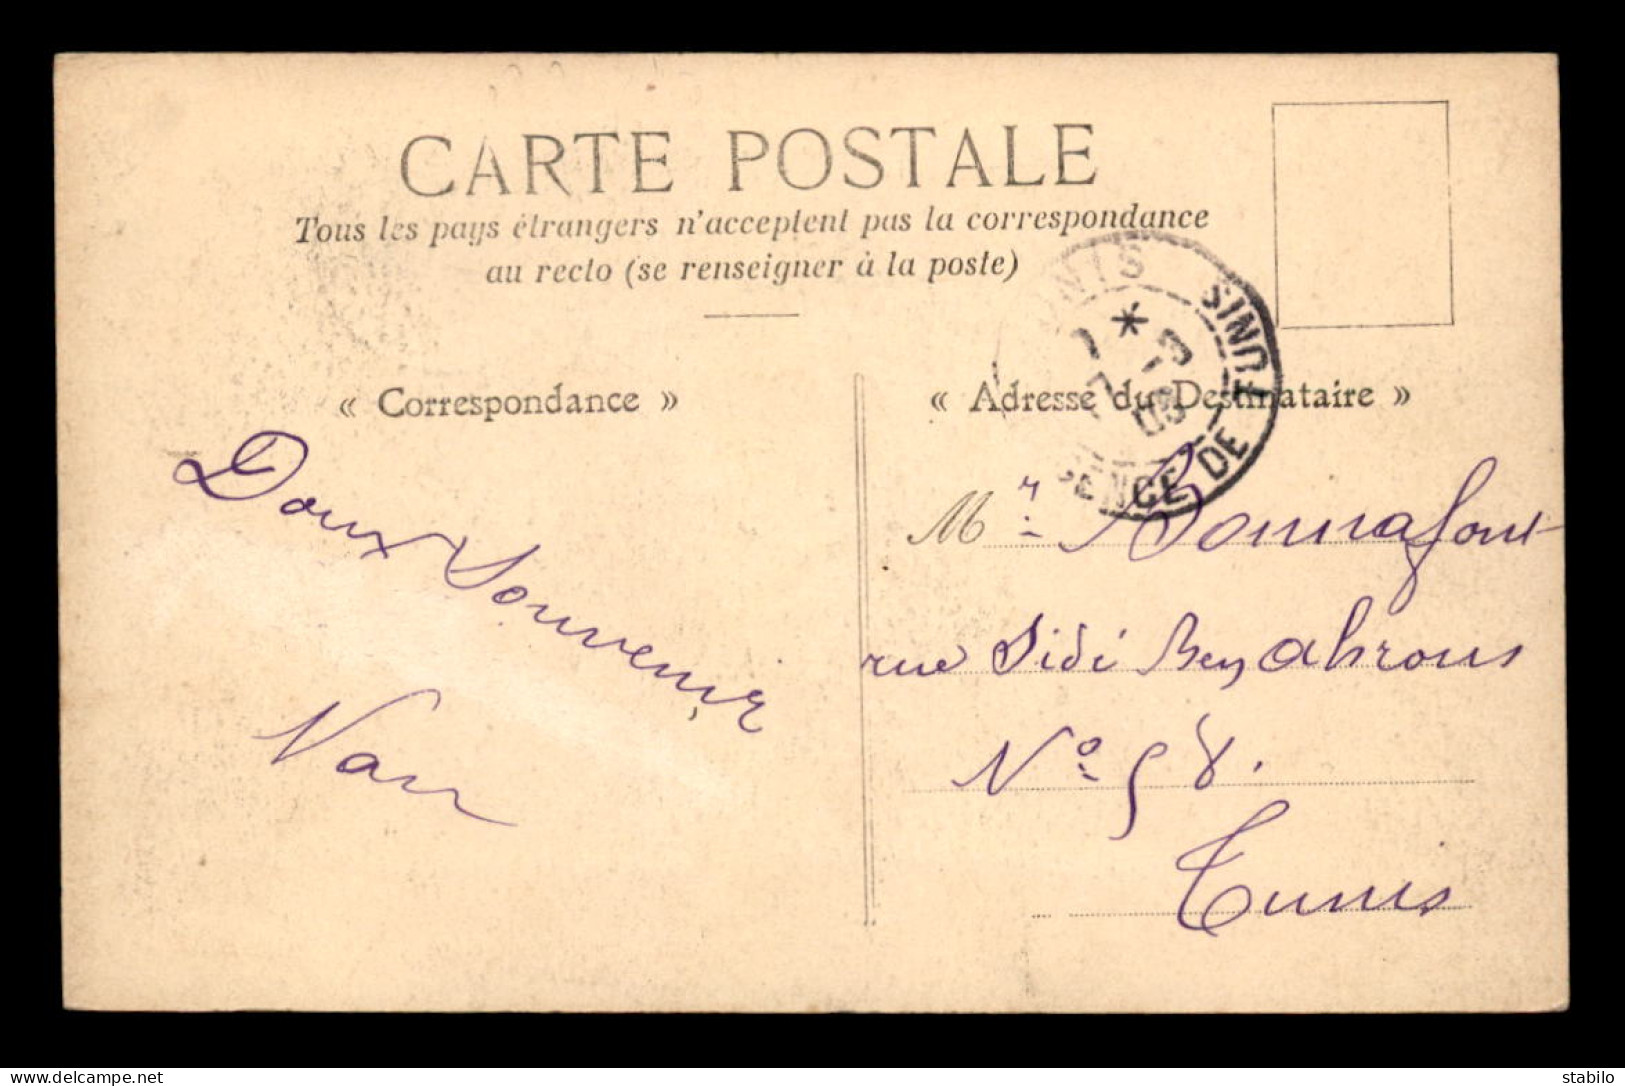 CARTE POSTALE
Tous les pays étrangers n'acceptent pas la correspondance
au recto (se renseigner à la poste)
« Correspondance »
Doux Souvenir
« Adresse du Destinataire »
TUNIS
DE TUNIS
Mr. Bonnafont
rue Sidi Ben ahrous
No 58.
Tunis
delcampe.net
stabilo